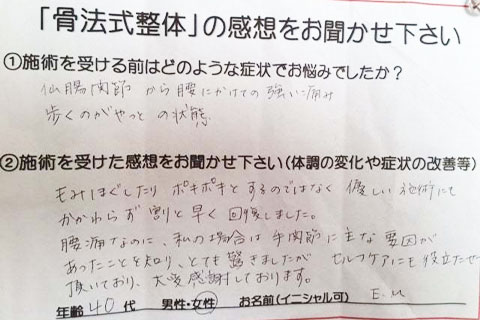 「骨法式整体」の感想をお聞かせ下さい
①施術を受ける前はどのような症状でお悩みでしたか？
仙腸関節から腰にかけての強い痛み
歩くのがやっとの状態
②施術を受けた感想をお聞かせ下さい（体調の変化や症状の改善等）
もみほぐしたりポキポキとするのではなく優しい施術にも
かかわらず割と早く回復しました。
腰痛なのに、私の場合は手関節に主な要因が
あったことを知り、とても驚きましたが セルフケアにも役立たせて
頂いており、大変感謝しております。
年齢 40代 男性・女性 お名前（イニシャル可） E.M